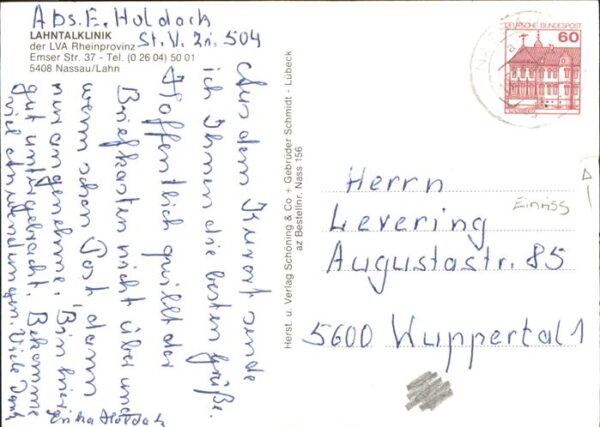 Abs. E. Holdack
LAHNTALKLINIK
der LVA Rheinprovinz
St. V. Zi. 504
Emser Str. 37 - Tel. (0 26 04) 50 01
5408 Nassau/Lahn
Aus dem Kurort sende
ich Ihnen die besten Grüße.
Hoffentlich quillt der
Briefkasten nicht über und
wenn schon Post dann
nur angenehme. Bin hier
gut untergebracht. Bekomme
viel Anwendungen. Viele Dank
Erika Holdack
Herst. u. Verlag Schöning & Co + Gebrüder Schmidt - Lübeck
az Bestellnr. Nass 156
DEUTSCHE BUNDESPOST
60
Herrn
Einriss
Levering
Augustastr. 85
5600 Wuppertal 1